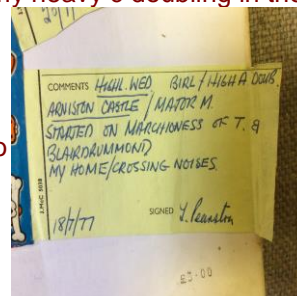 my heavy e doubling in the
COMMENTS HIGHL. WED. BIRL / HIGH A DOUB.
ARNISTON CASTLE / MAJOR M.
STARTED ON MARCHIONESS OF T. &
BLAIRDRUMMOND
MY HOME/CROSSING NOISES
18/7/77 SIGNED
£3.00